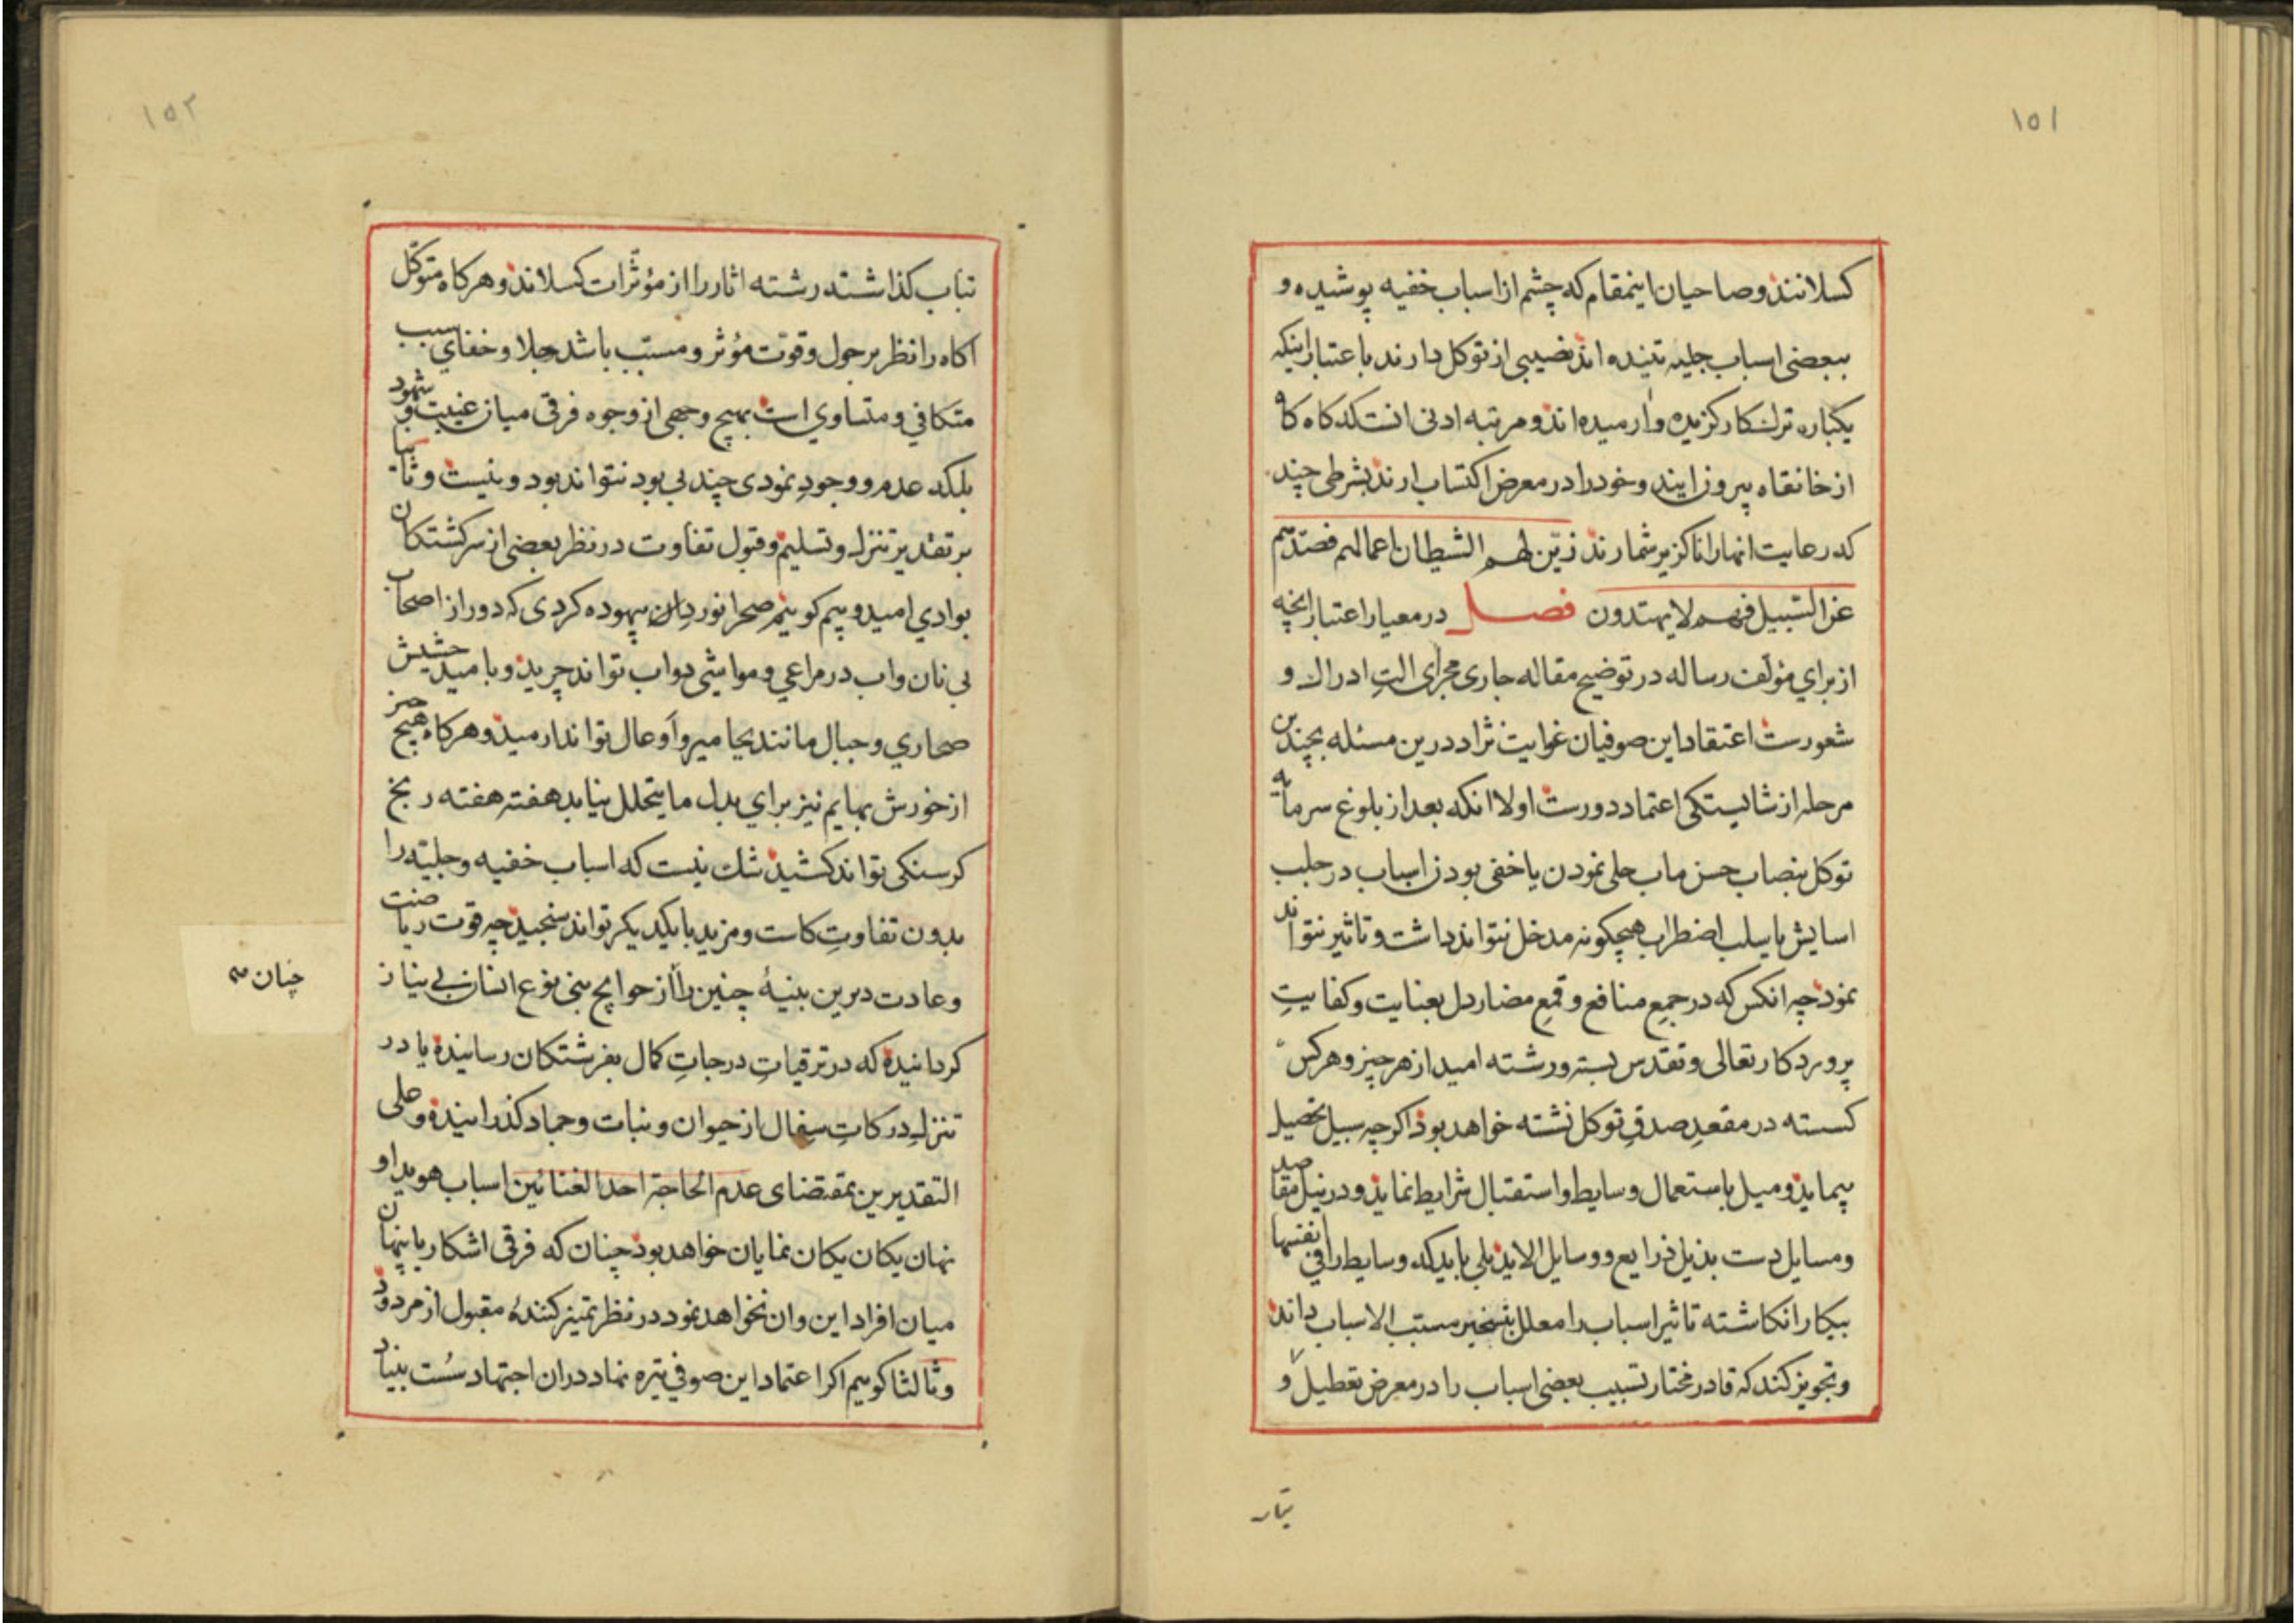 ۱۵۱
کسلانند و صاحبان اینمقام که چشم از اسباب خفیه پوشیده و
ببعضی اسباب جلیه تنیده اند نصیبی از توکل دارند باعتبار اینکه
یکباره ترك کار گزیده وا رمیده اند و مرتبه ادنی انست که کاه کاه
از خانقاه بیرون ایند و خود را در معرض اکتساب ارند بشرطی چند
که رعایت انها را ناکزیر شمارند زیّن لهم الشیطان اعمالهم فصدّهم
عن السّبیل فهم لا یهتدون فصل در معیار اعتبار انچه
از برای مؤلّف رساله در توضیح مقاله جاری مجرای الت ادراك و
شعورست اعتقاد این صوفیان غوایت نژاد درین مسئله بچندین
مرحله از شایستکی اعتماد دورست اولا انکه بعد از بلوغ سرمایه
توکل بنصاب حسن ماب جلی نمودن یا خفی بودن اسباب در جلب
اسایش یا سلب اضطراب هیچکونه مدخل نتواند داشت و تاثیر نتواند
نمود چه انکس که در جمعِ منافع و قمعِ مضار دل بعنایت و کفایتِ
پروردکار تعالی و تقدس بسته و رشته امید از هر چیز و هر کس
کسسته در مقعدِ صدقِ توکل نشسته خواهد بود اکر چه سبیل تحصیل
پیماید و میل باستعمال وسایط و استقبال شرایط نماید و در نیل مقاصد
و مسایل دست بذیل ذرایع و وسایل الاید بلی باید که وسایط را فی انفسها
بیکار انکاشته تاثیر اسباب را معلل بتسخیر مسبّب الاسباب داند
و تجویز کند که قادر مختار تسبیب بعضی اسباب را در معرض تعطیل و
۱۵۲
تباب کذاشته رشته اثار را از مؤثّرات کسلاند و هر کاه متوکّل
اکاه را نظر بر حول و قوّت مؤثر و مسبّب باشد جلا و خفای سبب
متکافی و متساوی است بهیچ وجهی از وجوه فرقی میان غیبت و شهود
بلکه عدم و وجودِ نمودی چند بی بود نتواند بود و نیست و ثانیا
بر تقدیر تنزل و تسلیم و قبول تفاوت در نظر بعضی از سرکشتکان
بوادی امید و بیم کوییم صحرانوردان بیهوده کردی که دور از اصحاب
بی نان و اب در مراعی و مواشی دواب تواند چرید و بامید حشیش
صحاری و جبال مانند یحامیر و اوعال تواند ارمید و هر کاه هیچ جز
از خورش بهایم نیز برای بدل ما یتحلل نیابد هفته هفته رنج
کرسنکی تواند کشید شك نیست که اسباب خفیه و جلیّه را
بدون تفاوتِ کاست و مزید با یکدیکر تواند سنجید چه قوت ریاضت
و عادت دیرین بنیهٔ چنین را از حوایج بنی نوع انسان بی نیاز
چنان
کردانیده که در ترقیاتِ درجاتِ کمال بفرشتکان رسانیده یا در
تنزلِ درکاتِ سفال از حیوان و نبات و جماد کذرانیده و علی
التقدیرین بمقتضای عدم الحاجة احد الغنائین اسباب هویدا و
نهان یکان یکان نمایان خواهد بود چنان که فرقی اشکار یا پنهان
میان افراد این و ان نخواهد نمود در نظر تمیز کنندهٔ مقبول از مردود
و ثالثا کوییم اکر اعتماد این صوفی تیره نهاد در ان اجتهاد سُست بنیاد